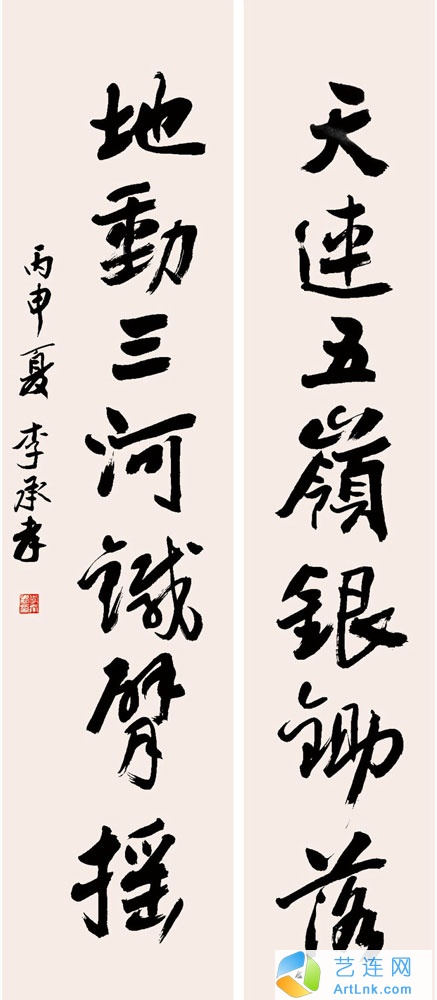 天連五嶺銀鋤落
地動三河鐵臂摇
丙申夏 李承孝
艺连网
ArtLnk.com